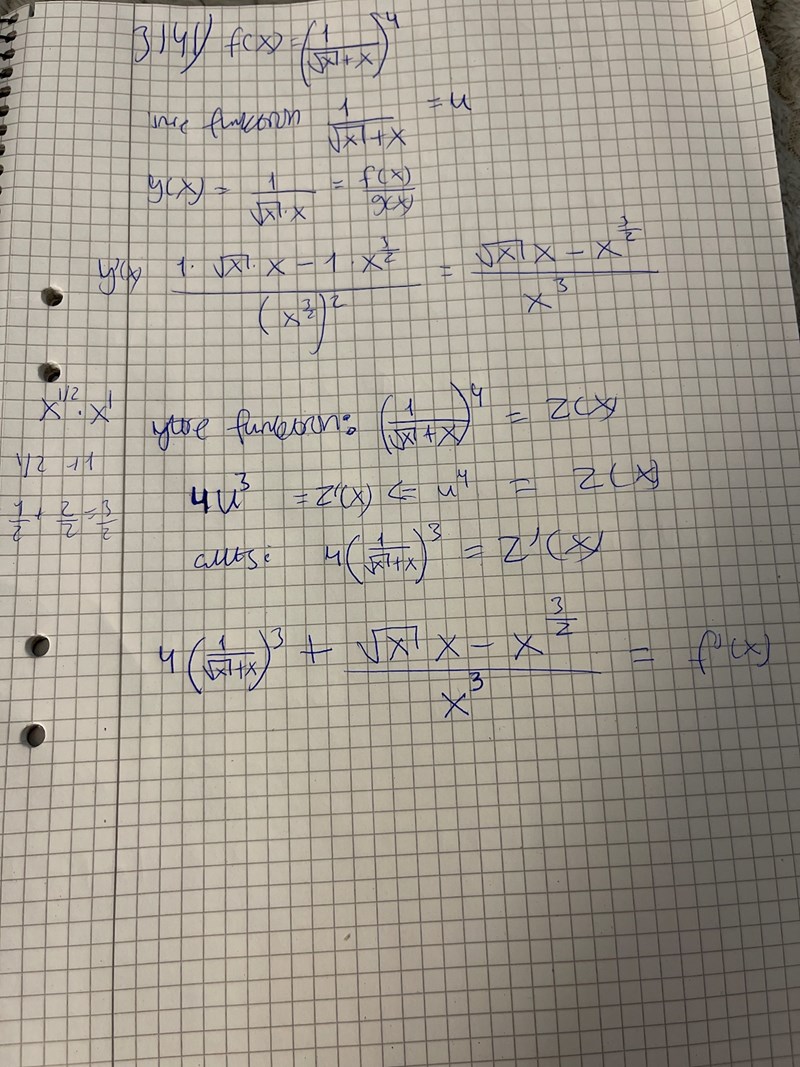 3141) f(x) = (1/(√x + x))^4
inre funktion 1/(√x + x) = u
y(x) = 1/(√x · x) = f(x)/g(x)
y'(x) (1 · √x · x − 1 · x^(3/2))/(x^(3/2))^2 = (√x x − x^(3/2))/x^3
x^(1/2) · x^1
1/2 + 1
1/2 + 2/2 = 3/2
yttre funktion: (1/(√x + x))^4 = z(x)
4u^3 = z'(x) <= u^4 = z(x)
4(1/(√x + x))^3 = z'(x)
4(1/(√x + x))^3 + (√x x − x^(3/2))/x^3 = f'(x)